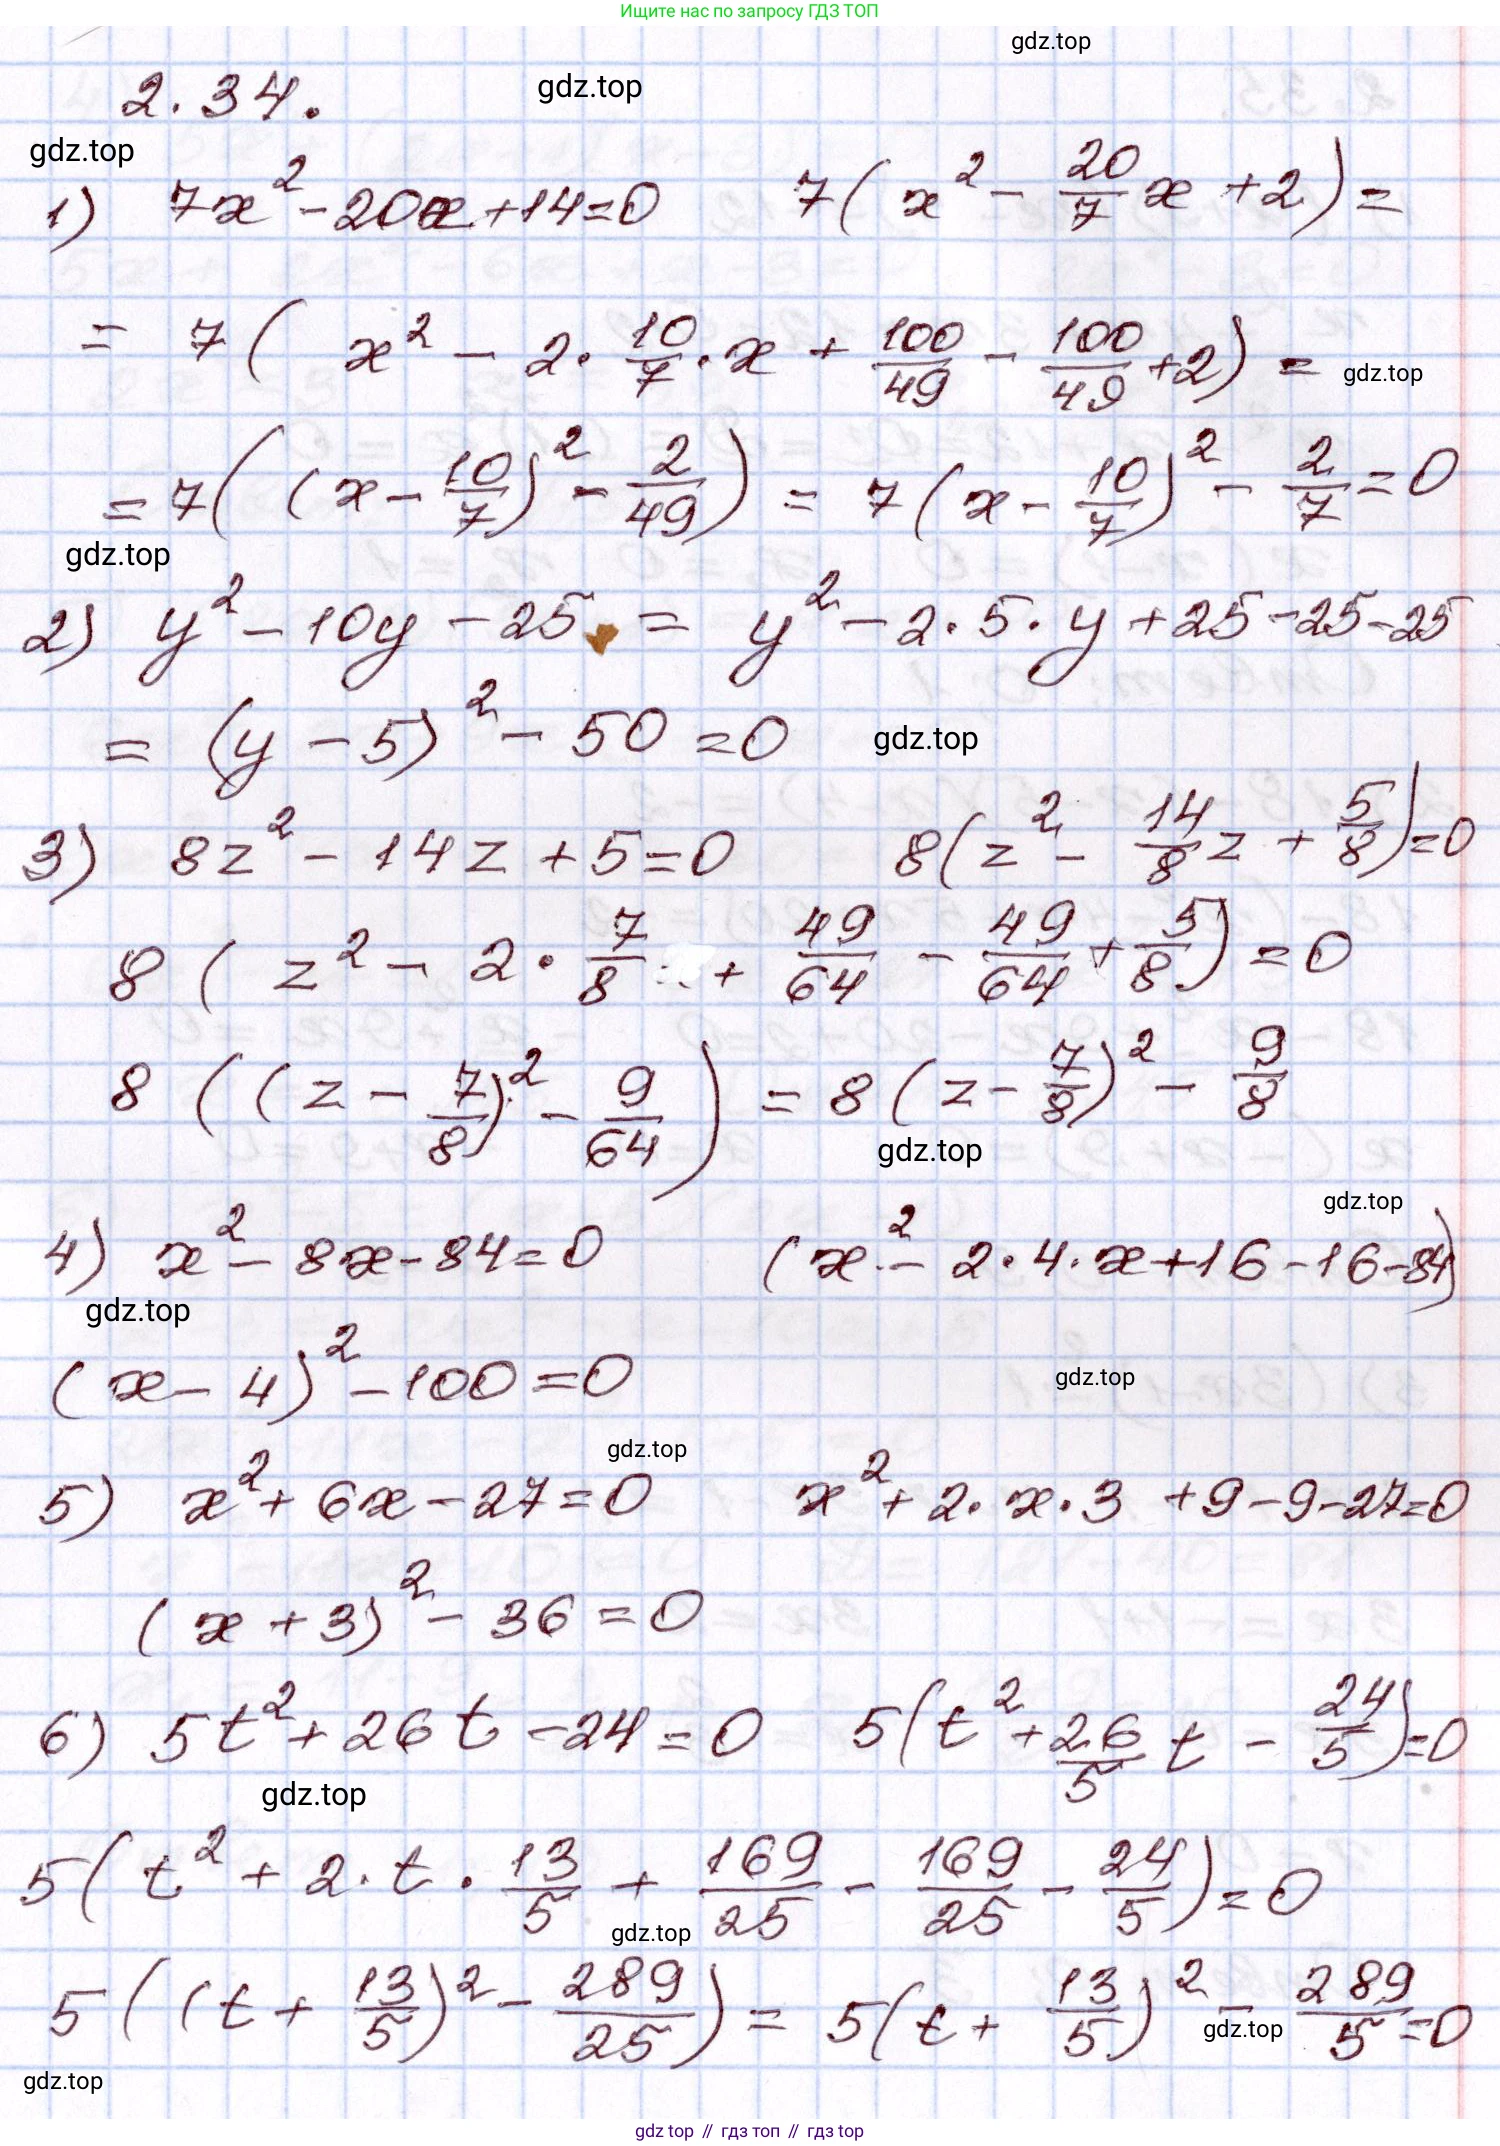 Ищите нас по запросу ГДЗ ТОП
gdz.top
2.34.
gdz.top
gdz.top
1) 7x² - 20x + 14 = 0    7(x² - 20/7 x + 2) =
= 7(x² - 2 · 10/7 · x + 100/49 - 100/49 + 2) =
gdz.top
= 7((x - 10/7)² - 2/49) = 7(x - 10/7)² - 2/7 = 0
gdz.top
2) y² - 10y - 25 = y² - 2 · 5 · y + 25 - 25 - 25
= (y - 5)² - 50 = 0
gdz.top
3) 8z² - 14z + 5 = 0    8(z² - 14/8 z + 5/8) = 0
8(z² - 2 · 7/8 + 49/64 - 49/64 + 5/8) = 0
8((z - 7/8)² - 9/64) = 8(z - 7/8)² - 9/8
gdz.top
gdz.top
4) x² - 8x - 84 = 0    (x² - 2 · 4 · x + 16 - 16 - 84)
gdz.top
(x - 4)² - 100 = 0
gdz.top
gdz.top
5) x² + 6x - 27 = 0    x² + 2 · x · 3 + 9 - 9 - 27 = 0
(x + 3)² - 36 = 0
6) 5t² + 26t - 24 = 0    5(t² + 26/5 t - 24/5) = 0
gdz.top
5(t² + 2 · t · 13/5 + 169/25 - 169/25 - 24/5) = 0
gdz.top
5((t + 13/5)² - 289/25) = 5(t + 13/5)² - 289/5 = 0
gdz.top
gdz.top
gdz top // гдз топ // гдз top